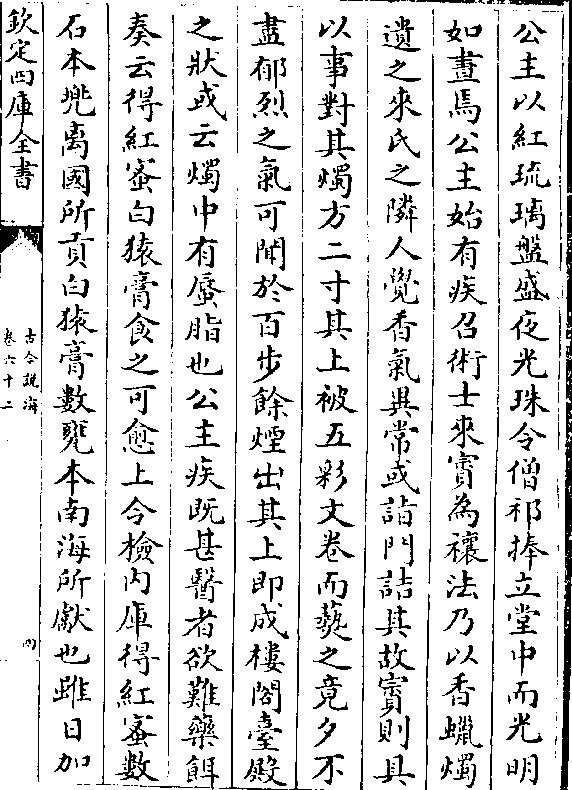 公主以紅琉璃盤盛夜光珠令僧祁捧立堂中而光明
如晝焉公主始有疾召術士來賓為禳法乃以香蠟燭
遺之來氏之隣人覺香氣異常或詣門詰其故賓則具
以事對其燭方二寸其上被五彩文卷而爇之竟夕不
盡郁烈之氣可聞於百步餘煙出其上即成樓閣臺殿
之狀或云燭中有蜃脂也公主疾既甚醫者欲難藥餌
奏云得紅蜜白猿膏食之可愈上令檢内庫得紅蜜數
石本兠离國所貢白猿膏數甕本南海所獻也雖日加
欽定四庫全書
古今說海
卷六十二
四